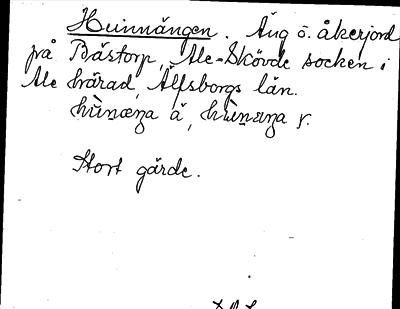 Hunnängen. Äng o. åkerjord
på Båstorp, Ale-Skövde socken i
Ale härad, Älfsborgs län.
Stort gärde.